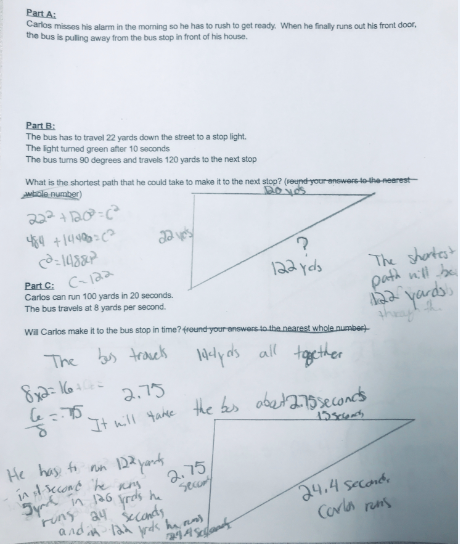 Part A:
Carlos misses his alarm in the morning so he has to rush to get ready. When he finally runs out his front door,
the bus is pulling away from the bus stop in front of his house.
Part B:
The bus has to travel 22 yards down the street to a stop light.
The light turned green after 10 seconds
The bus turns 90 degrees and travels 120 yards to the next stop
What is the shortest path that he could take to make it to the next stop? (round your answers to the nearest
whole number)
120 yds
22² + 120² = c²
484 + 14400 = c²
c² = 14884
c = 122
22 yds
?
122 yds
The shortest
path will be
122 yards
Part C:
Carlos can run 100 yards in 20 seconds.
The bus travels at 8 yards per second.
Will Carlos make it to the bus stop in time? (round your answers to the nearest whole number)
The bus travels 142 yds all together
8x2=16
6/8 = .75
2.75
It will take the bus about 2.75 seconds
15 seconds
2.75
He has to run 122 yards
in 1 second he runs
5 yrds in 120 yrds he
runs 24 seconds
and in 122 yrds he runs
24.4 seconds
24.4 seconds
Carlos runs